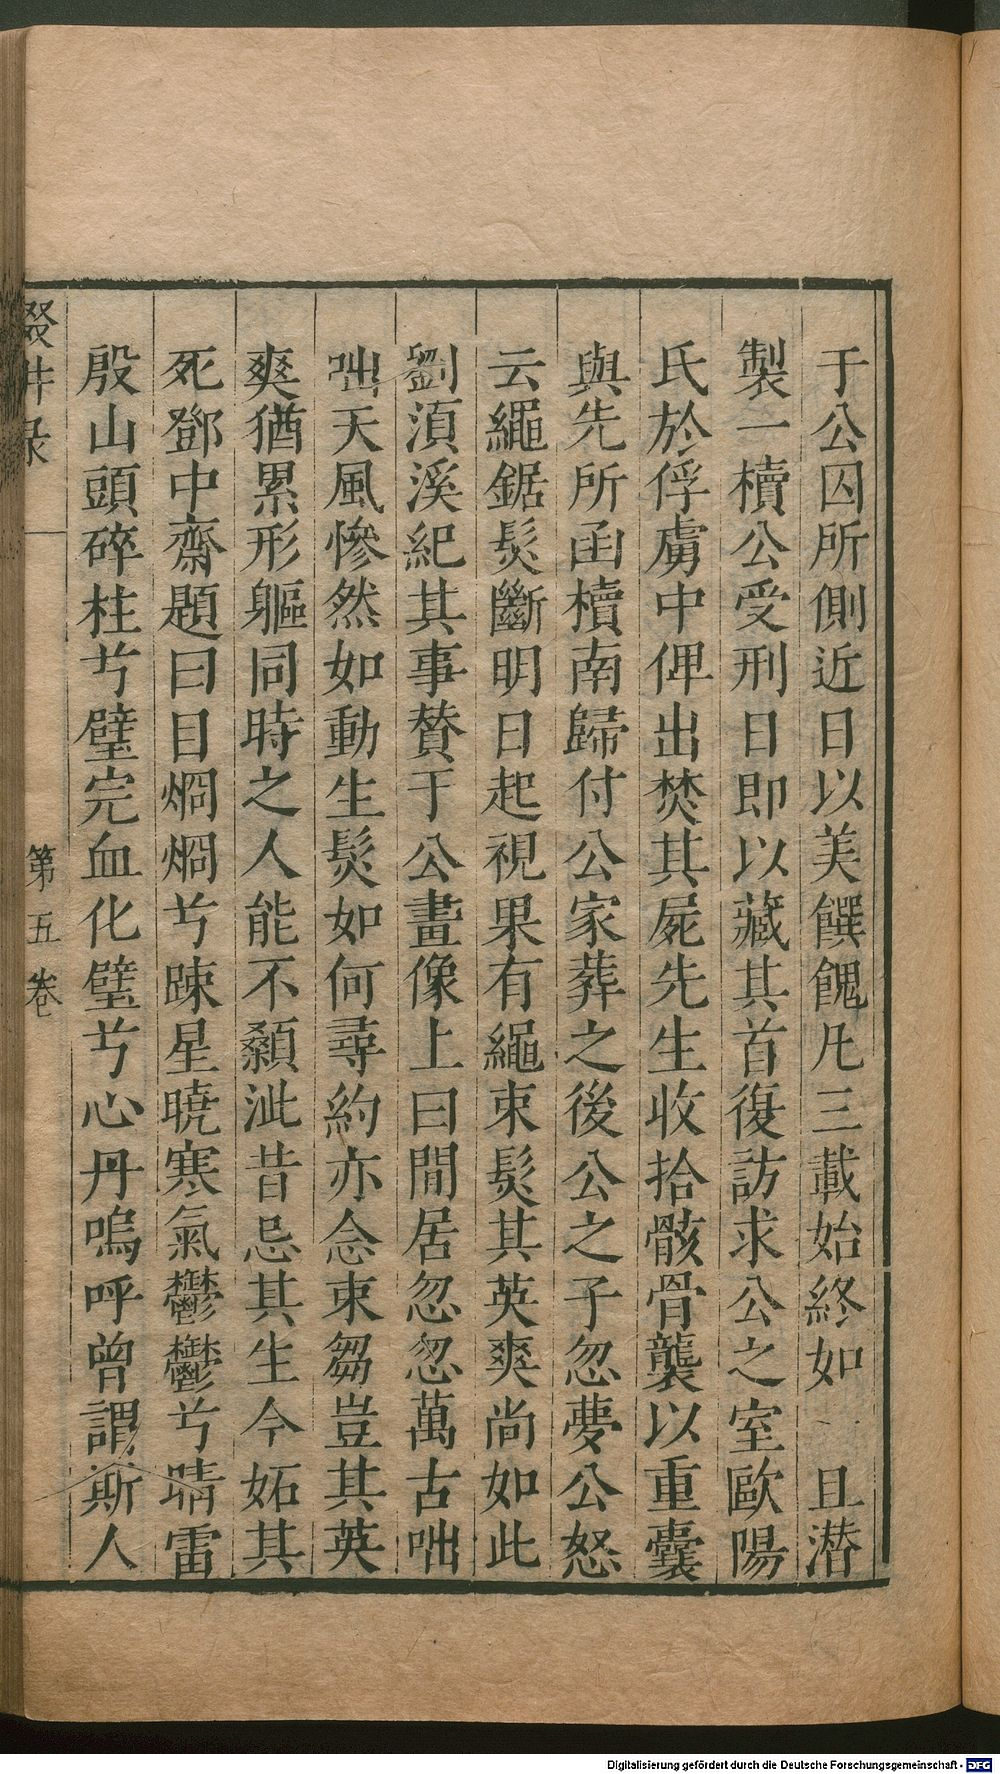 于公囚所側近日以美饌餽凡三載始終如 且潜
製一櫝公受刑日即以藏其首復訪求公之室歐陽
氏於俘虜中俾出焚其屍先生收拾骸骨襲以重囊
與先所函櫝南歸付公家葬之後公之子忽夢公怒
云繩鋸髮斷明日起視果有繩束髮其英爽尚如此
劉湏溪紀其事賛于公畫像上曰間居忽忽萬古咄
咄天風慘然如動生髮如何尋約亦念束芻豈其英
爽猶累形軀同時之人能不顙泚昔忌其生今妬其
死鄧中齋題曰目烱烱兮踈星曉寒氣鬱鬱兮晴雷
殷山頭碎柱兮璧完血化璧兮心丹嗚呼曾謂斯人
第五卷
Digitalisierung gefördert durch die Deutsche Forschungsgemeinschaft - DFG